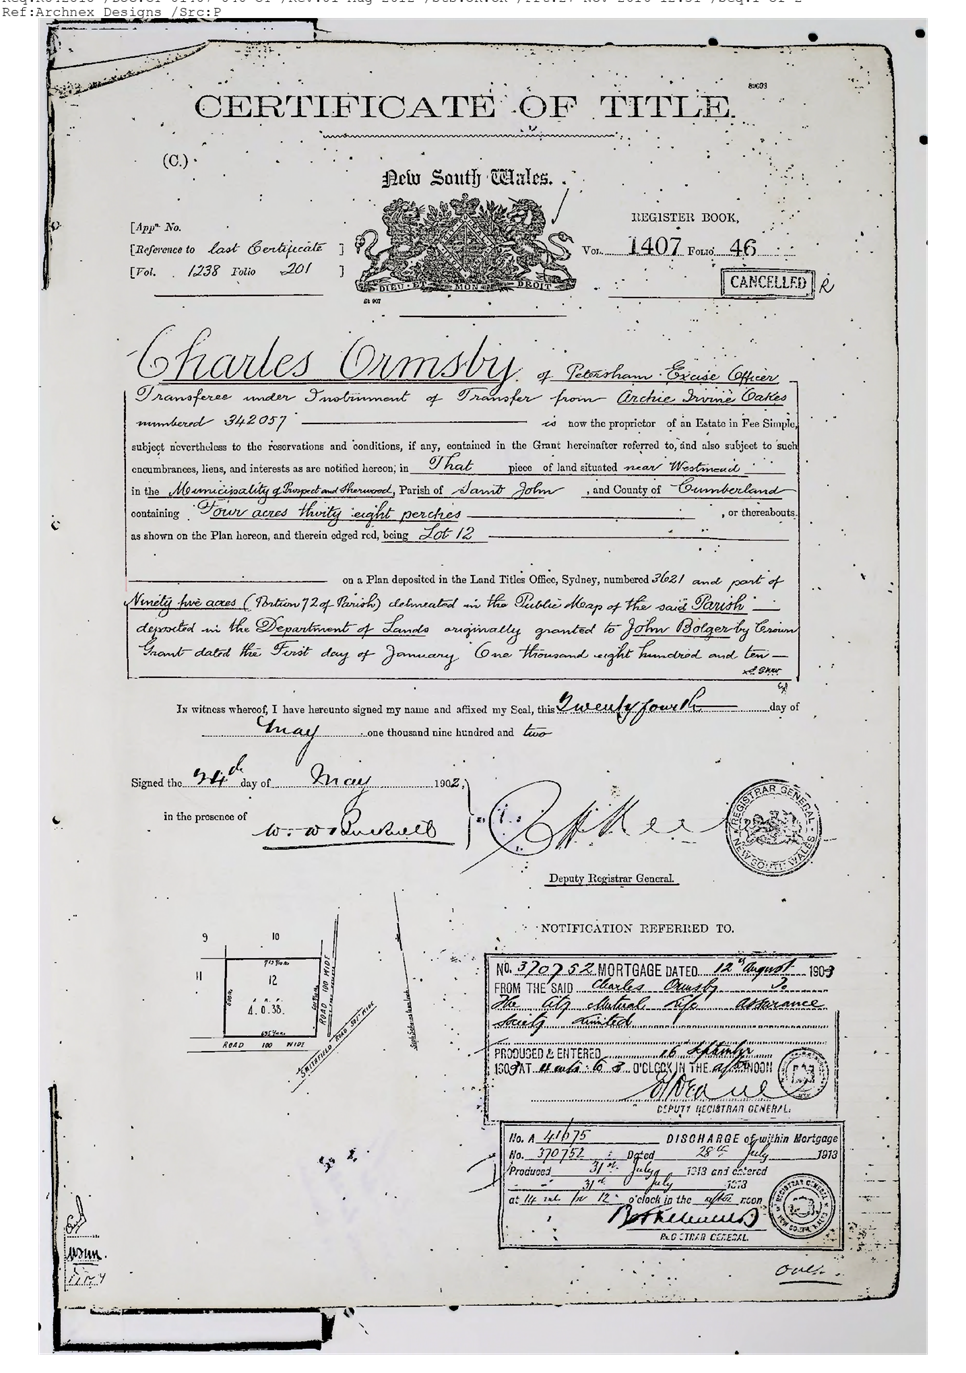 Ref:Archnex Designs /Src:P
CERTIFICATE OF TITLE.
(C.)
New South Wales.
[Appn. No.
[Reference to last Certificate ]
[Vol. 1238 Folio 201 ]
DIEU ET MON DROIT
REGISTER BOOK,
VOL. 1407 FOLIO 46
CANCELLED R
Charles Ormsby of Petersham Excise Officer
Transferee under Instrument of Transfer from Archie Irvine Oakes
numbered 342057 is now the proprietor of an Estate in Fee Simple,
subject nevertheless to the reservations and conditions, if any, contained in the Grant hereinafter referred to, and also subject to such
encumbrances, liens, and interests as are notified hereon, in That piece of land situated near Westmead
in the Municipality of Prospect and Sherwood, Parish of Saint John, and County of Cumberland
containing Four acres thirty eight perches, or thereabouts
as shown on the Plan hereon, and therein edged red, being Lot 12
on a Plan deposited in the Land Titles Office, Sydney, numbered 3621 and part of
Ninety five acres (Portion 72 of Parish) delineated in the Public Map of the said Parish
deposited in the Department of Lands originally granted to John Bolger by Crown
Grant dated the First day of January One thousand eight hundred and ten
In witness whereof, I have hereunto signed my name and affixed my Seal, this Twenty fourth day of
May one thousand nine hundred and two
Signed the 24th day of May 1902,
in the presence of
Deputy Registrar General.
REGISTRAR GENERAL NEW SOUTH WALES
9 10
11 12
4. 0. 38.
ROAD 100 WIDE
ROAD 100 WIDE
NOTIFICATION REFERRED TO.
NO. 370752 MORTGAGE DATED 12th August 1903
FROM THE SAID Charles Ormsby To
The City Mutual Life Assurance
Society Limited
PRODUCED & ENTERED 16 September
1903 AT O'CLOCK IN THE afternoon
DEPUTY REGISTRAR GENERAL.
No. A 41675 DISCHARGE of within Mortgage
No. 370752 Dated 28th July 1913
Produced 31st July 1913 and entered
31st July 1913
at 14 12 o'clock in the afternoon
REGISTRAR GENERAL.
over.